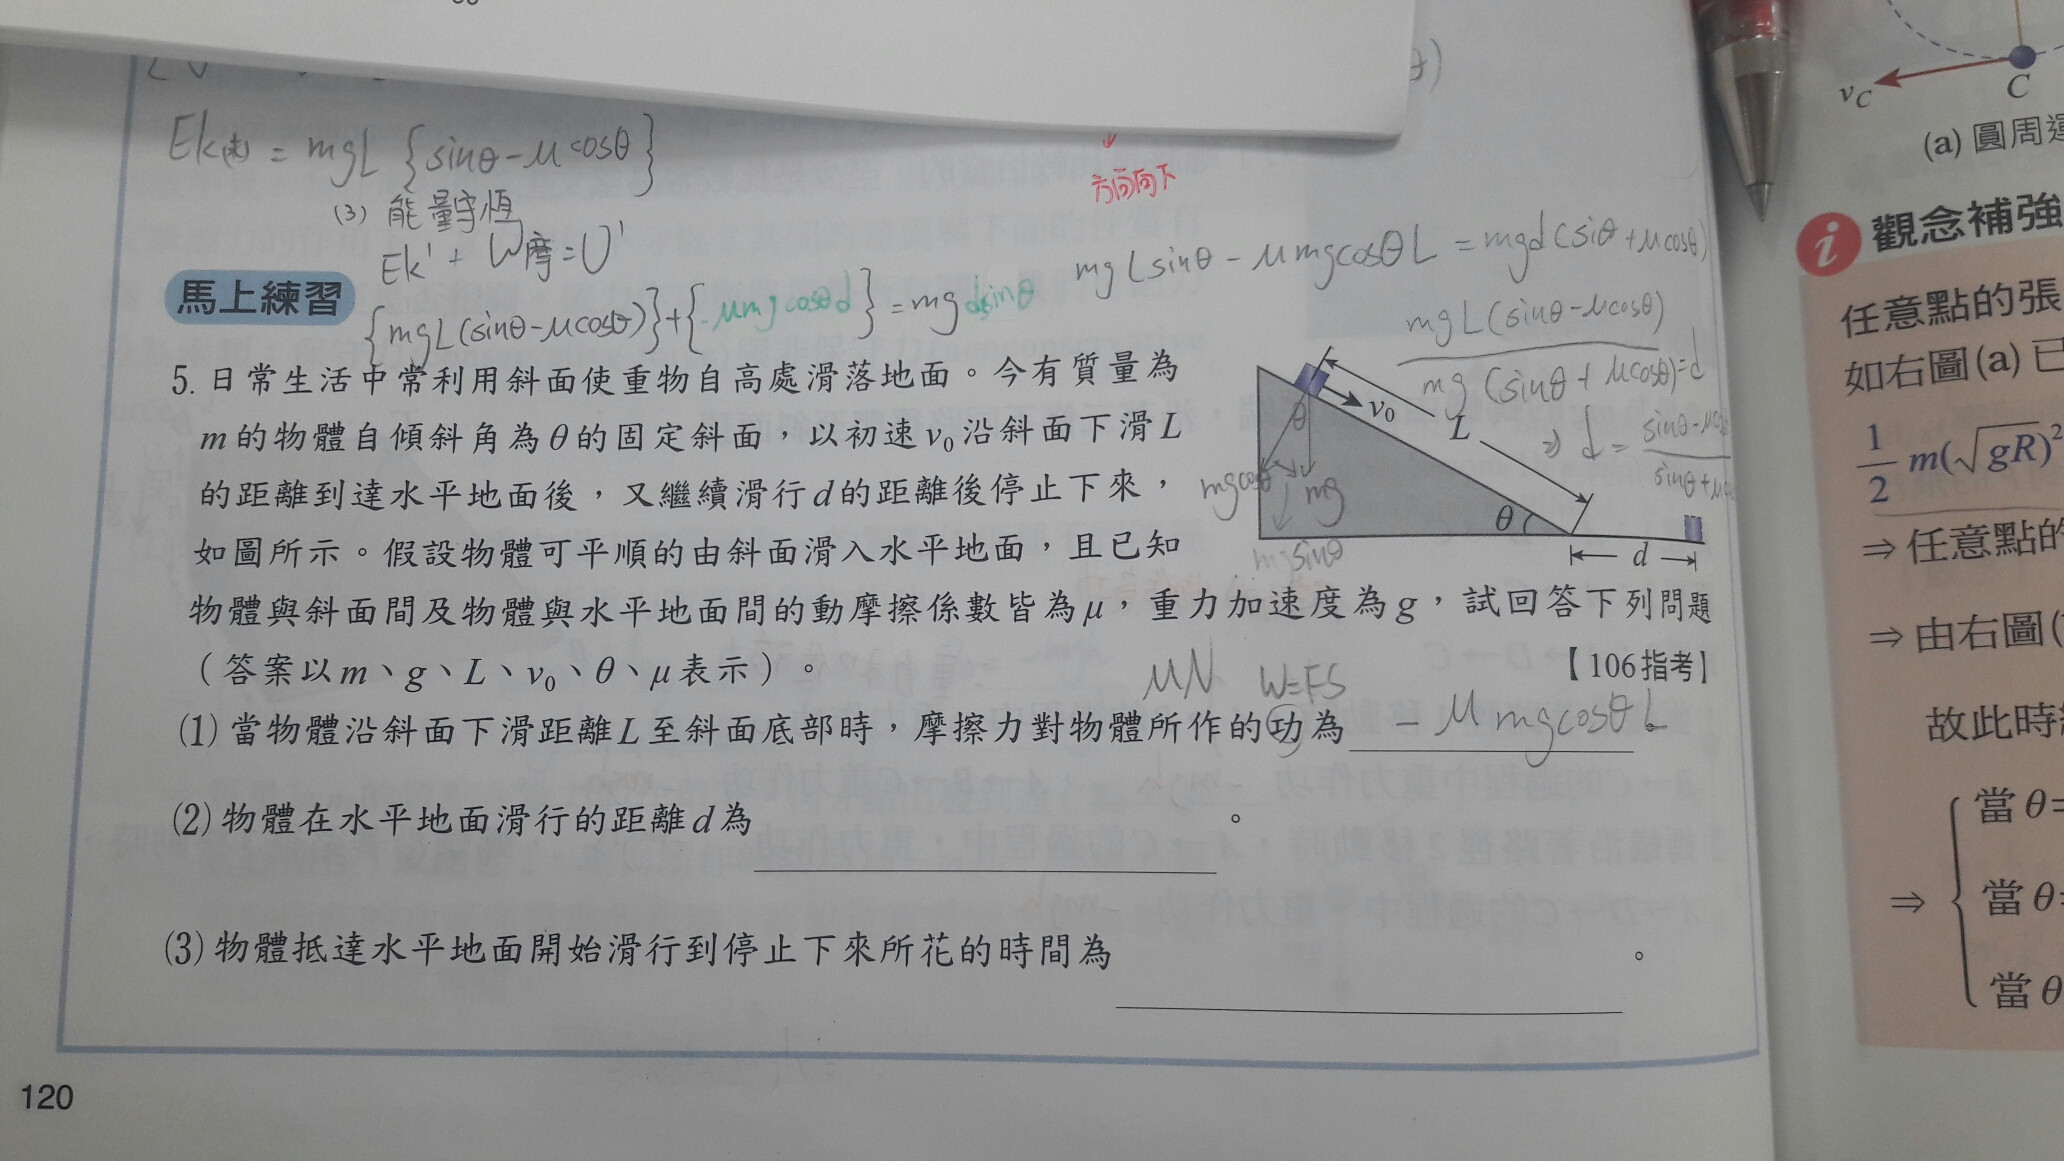 Ek(末) = mgL {sinθ-μcosθ}
(3) 能量守恆
Ek' + W摩 = U'
{mgL(sinθ-μcosθ)}+{-μmgcosθd} = mgdsinθ
方向向下
mgLsinθ - μmgcosθL = mgd(sinθ+μcosθ)
mgL(sinθ-μcosθ)
mg(sinθ+μcosθ) = d
⇒ d = sinθ-μ
sinθ+μ
馬上練習
5. 日常生活中常利用斜面使重物自高處滑落地面。今有質量為
m的物體自傾斜角為θ的固定斜面，以初速v₀沿斜面下滑L
的距離到達水平地面後，又繼續滑行d的距離後停止下來，
如圖所示。假設物體可平順的由斜面滑入水平地面，且已知
物體與斜面間及物體與水平地面間的動摩擦係數皆為μ，重力加速度為g，試回答下列問題
（答案以m、g、L、v₀、θ、μ表示）。
【106指考】
v₀
L
θ
mgcosθ
mg
mgsinθ
θ
d
μN W=FS
(1)當物體沿斜面下滑距離L至斜面底部時，摩擦力對物體所作的功為 -μmgcosθL 。
(2)物體在水平地面滑行的距離d為 。
(3)物體抵達水平地面開始滑行到停止下來所花的時間為 。
120
vC
C
(a) 圓周運
i 觀念補強
任意點的張
如右圖(a)已
1/2 m(√gR)²
⇒ 任意點的
⇒ 由右圖(
故此時
當θ=
⇒ 當θ=
當θ